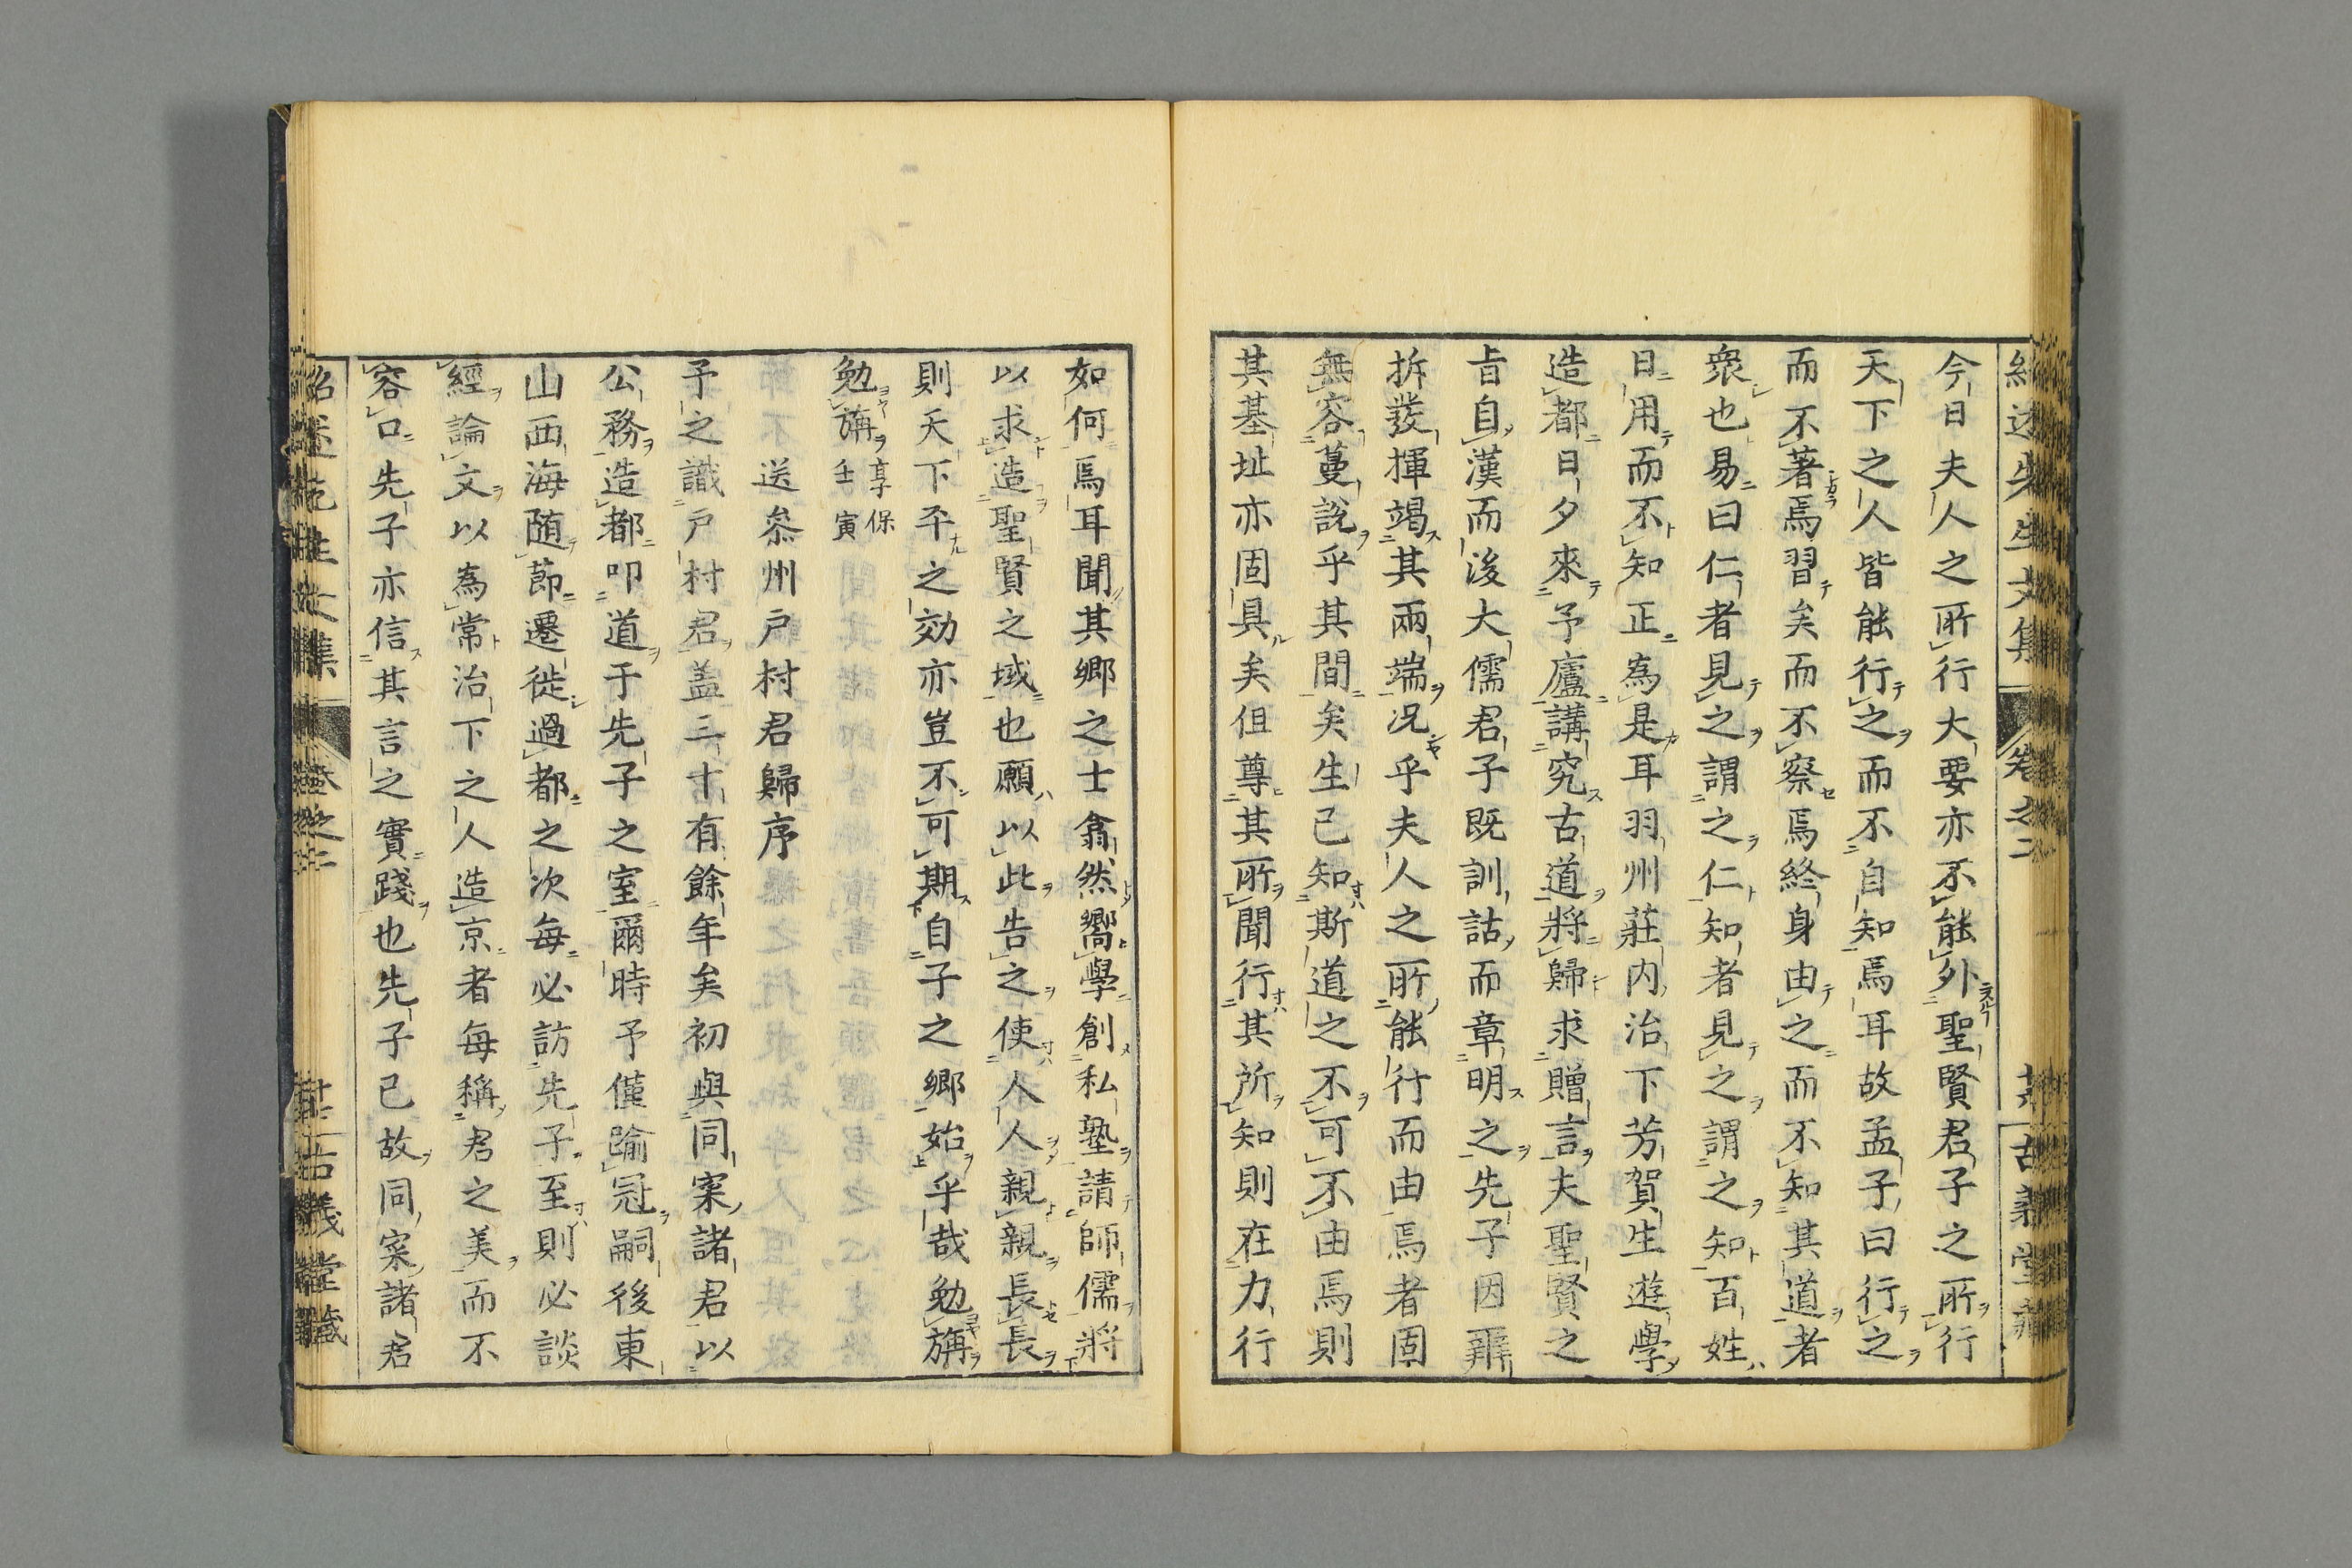 紹述先生文集 卷之二 古義堂藏
今日夫人之所行大要亦不能外聖賢君子之所行
天下之人皆能行之而不自知焉耳故孟子曰行之
而不著焉習矣而不察焉終身由之而不知其道者
衆也易曰仁者見之謂之仁知者見之謂之知百姓
日用而不知正為是耳羽州莊内治下芳賀生遊學
造都日夕來予廬講究古道將歸求贈言夫聖賢之
旨自漢而後大儒君子既訓詁而章明之先子因辨
拆發揮竭其兩端况乎夫人之所能行而由焉者固
無容蔓說乎其間矣生已知斯道之不可不由焉則
其基址亦固具矣但尊其所聞行其所知則在力行
如何焉耳聞其鄉之士翕然嚮學創私塾請師儒將
以求造聖賢之域也願以此告之使人人親親長長
則天下平之効亦豈不可期自子之鄉始乎哉勉旃
勉旃 享保壬寅
送叅州戸村君歸序
予之識戸村君盖三十有餘年矣初與同寀諸君以
公務造都叩道于先子之室爾時予僅踰冠嗣後東
山西海随莭遷徙過都之次每必訪先子至則必談
經論文以為常治下之人造京者每稱君之美而不
容口先子亦信其言之實踐也先子已故同寀諸君
紹述先生文集 卷之二 古義堂藏